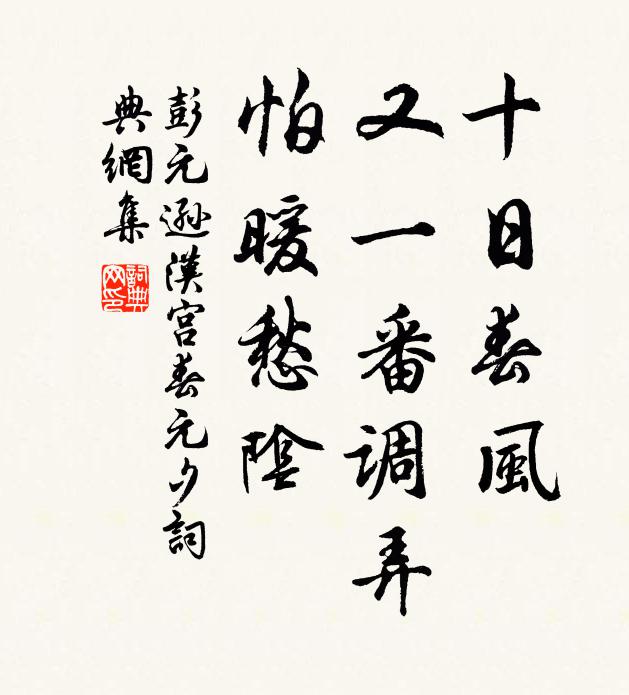 十日春風
又一番調弄
怕暖愁陰
彭元遜漢宮春元夕詞
典網集
詞典网印